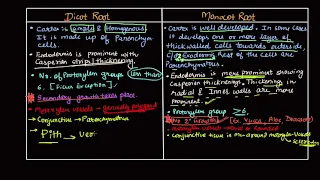 Dicot Root
Monocot Root
Cortex is small & Homogenous
It is made up of Parenchyma
cells.
Endodermis is prominent with
Casparian strips/thickening.
No. of Protoxylem groups less than
6. [Ficus Exception]
Secondary growth takes place.
Metaxylem vessels → generally polygonal
Conjunctive → Parenchymatous
Pith → ver
Cortex is well developed. In some cases
it develops one or more layer of
thickwalled cells towards outside,
Exodermis Rest of the cells are
Parenchymatous.
Endodermis is more prominent showing
Casparian thickenings. Thickening in
radial & Inner walls are more
prominent.
Protoxylem group ≥6.
No 2° Growth [Ex. Yucca, Aloe, Dracaena]
Metaxylem vessels → oval or rounded
Conjunctive tissue in
around metaxylem vessels → sclerenchy